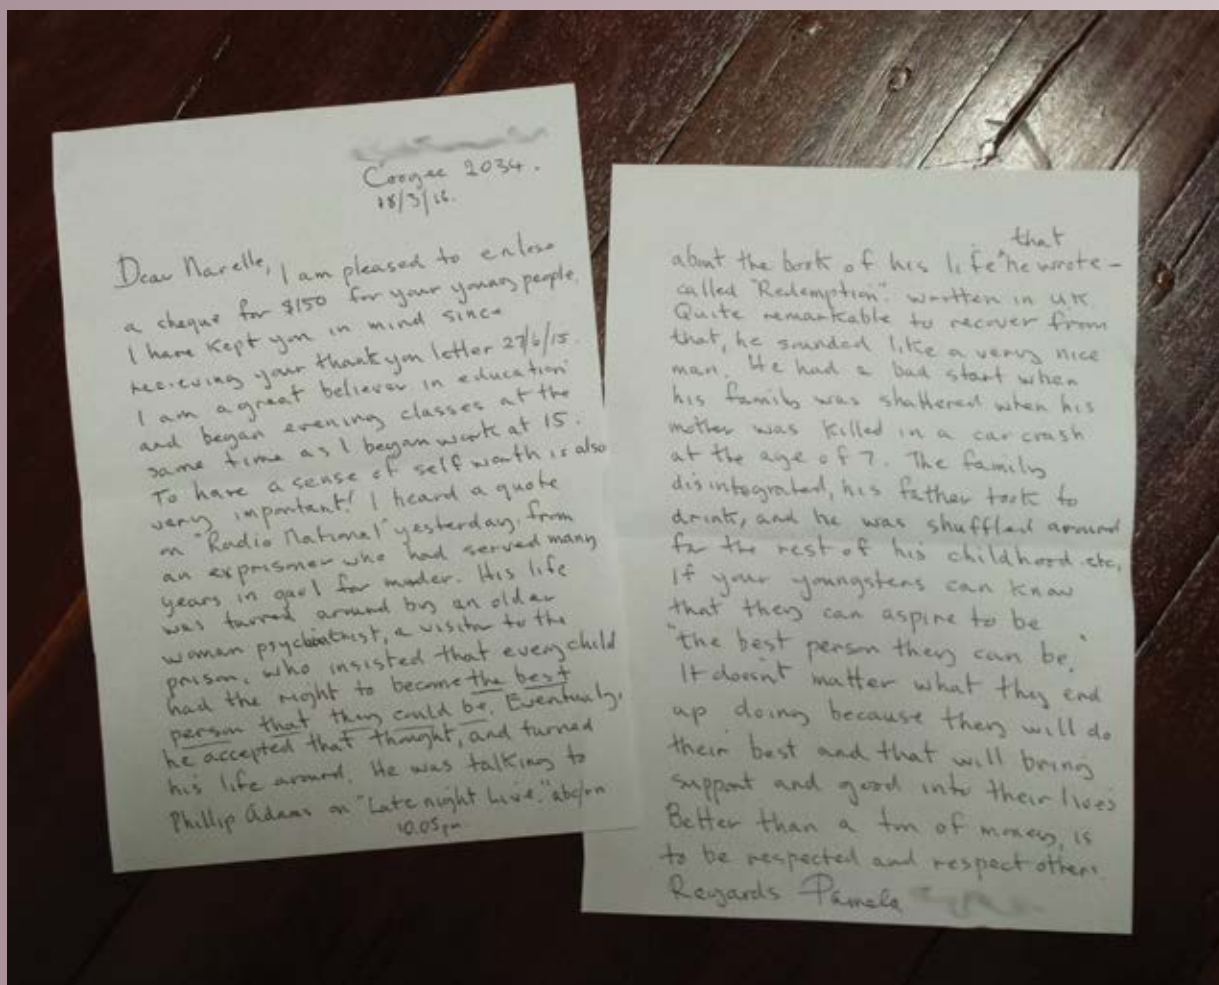 Coogee 2034.
18/3/16.
Dear Narelle, I am pleased to enclose
a cheque for $150 for your young people.
I have kept you in mind since
receiving your thankyou letter 27/6/15.
I am a great believer in education
and began evening classes at the
same time as I began work at 15.
To have a sense of self worth is also
very important! I heard a quote
on "Radio National" yesterday, from
an exprisoner who had served many
years in gaol for murder. His life
was turned around by an older
woman psychiatrist, a visitor to the
prison, who insisted that every child
had the right to become the best
person that they could be. Eventually,
he accepted that thought, and turned
his life around. He was talking to
Phillip Adams on "Late night Live." abc/rn
10.05pm
that
about the book of his life he wrote -
called "Redemption". written in UK
Quite remarkable to recover from
that, he sounded like a very nice
man. He had a bad start when
his family was shattered when his
mother was killed in a car crash
at the age of 7. The family
disintegrated, his father took to
drink, and he was shuffled around
for the rest of his childhood. etc,
If your youngsters can know
that they can aspire to be
"the best person they can be,"
It doesn't matter what they end
up doing because they will do
their best and that will bring
support and good into their lives
Better than a ton of money, is
to be respected and respect others.
Regards Pamela